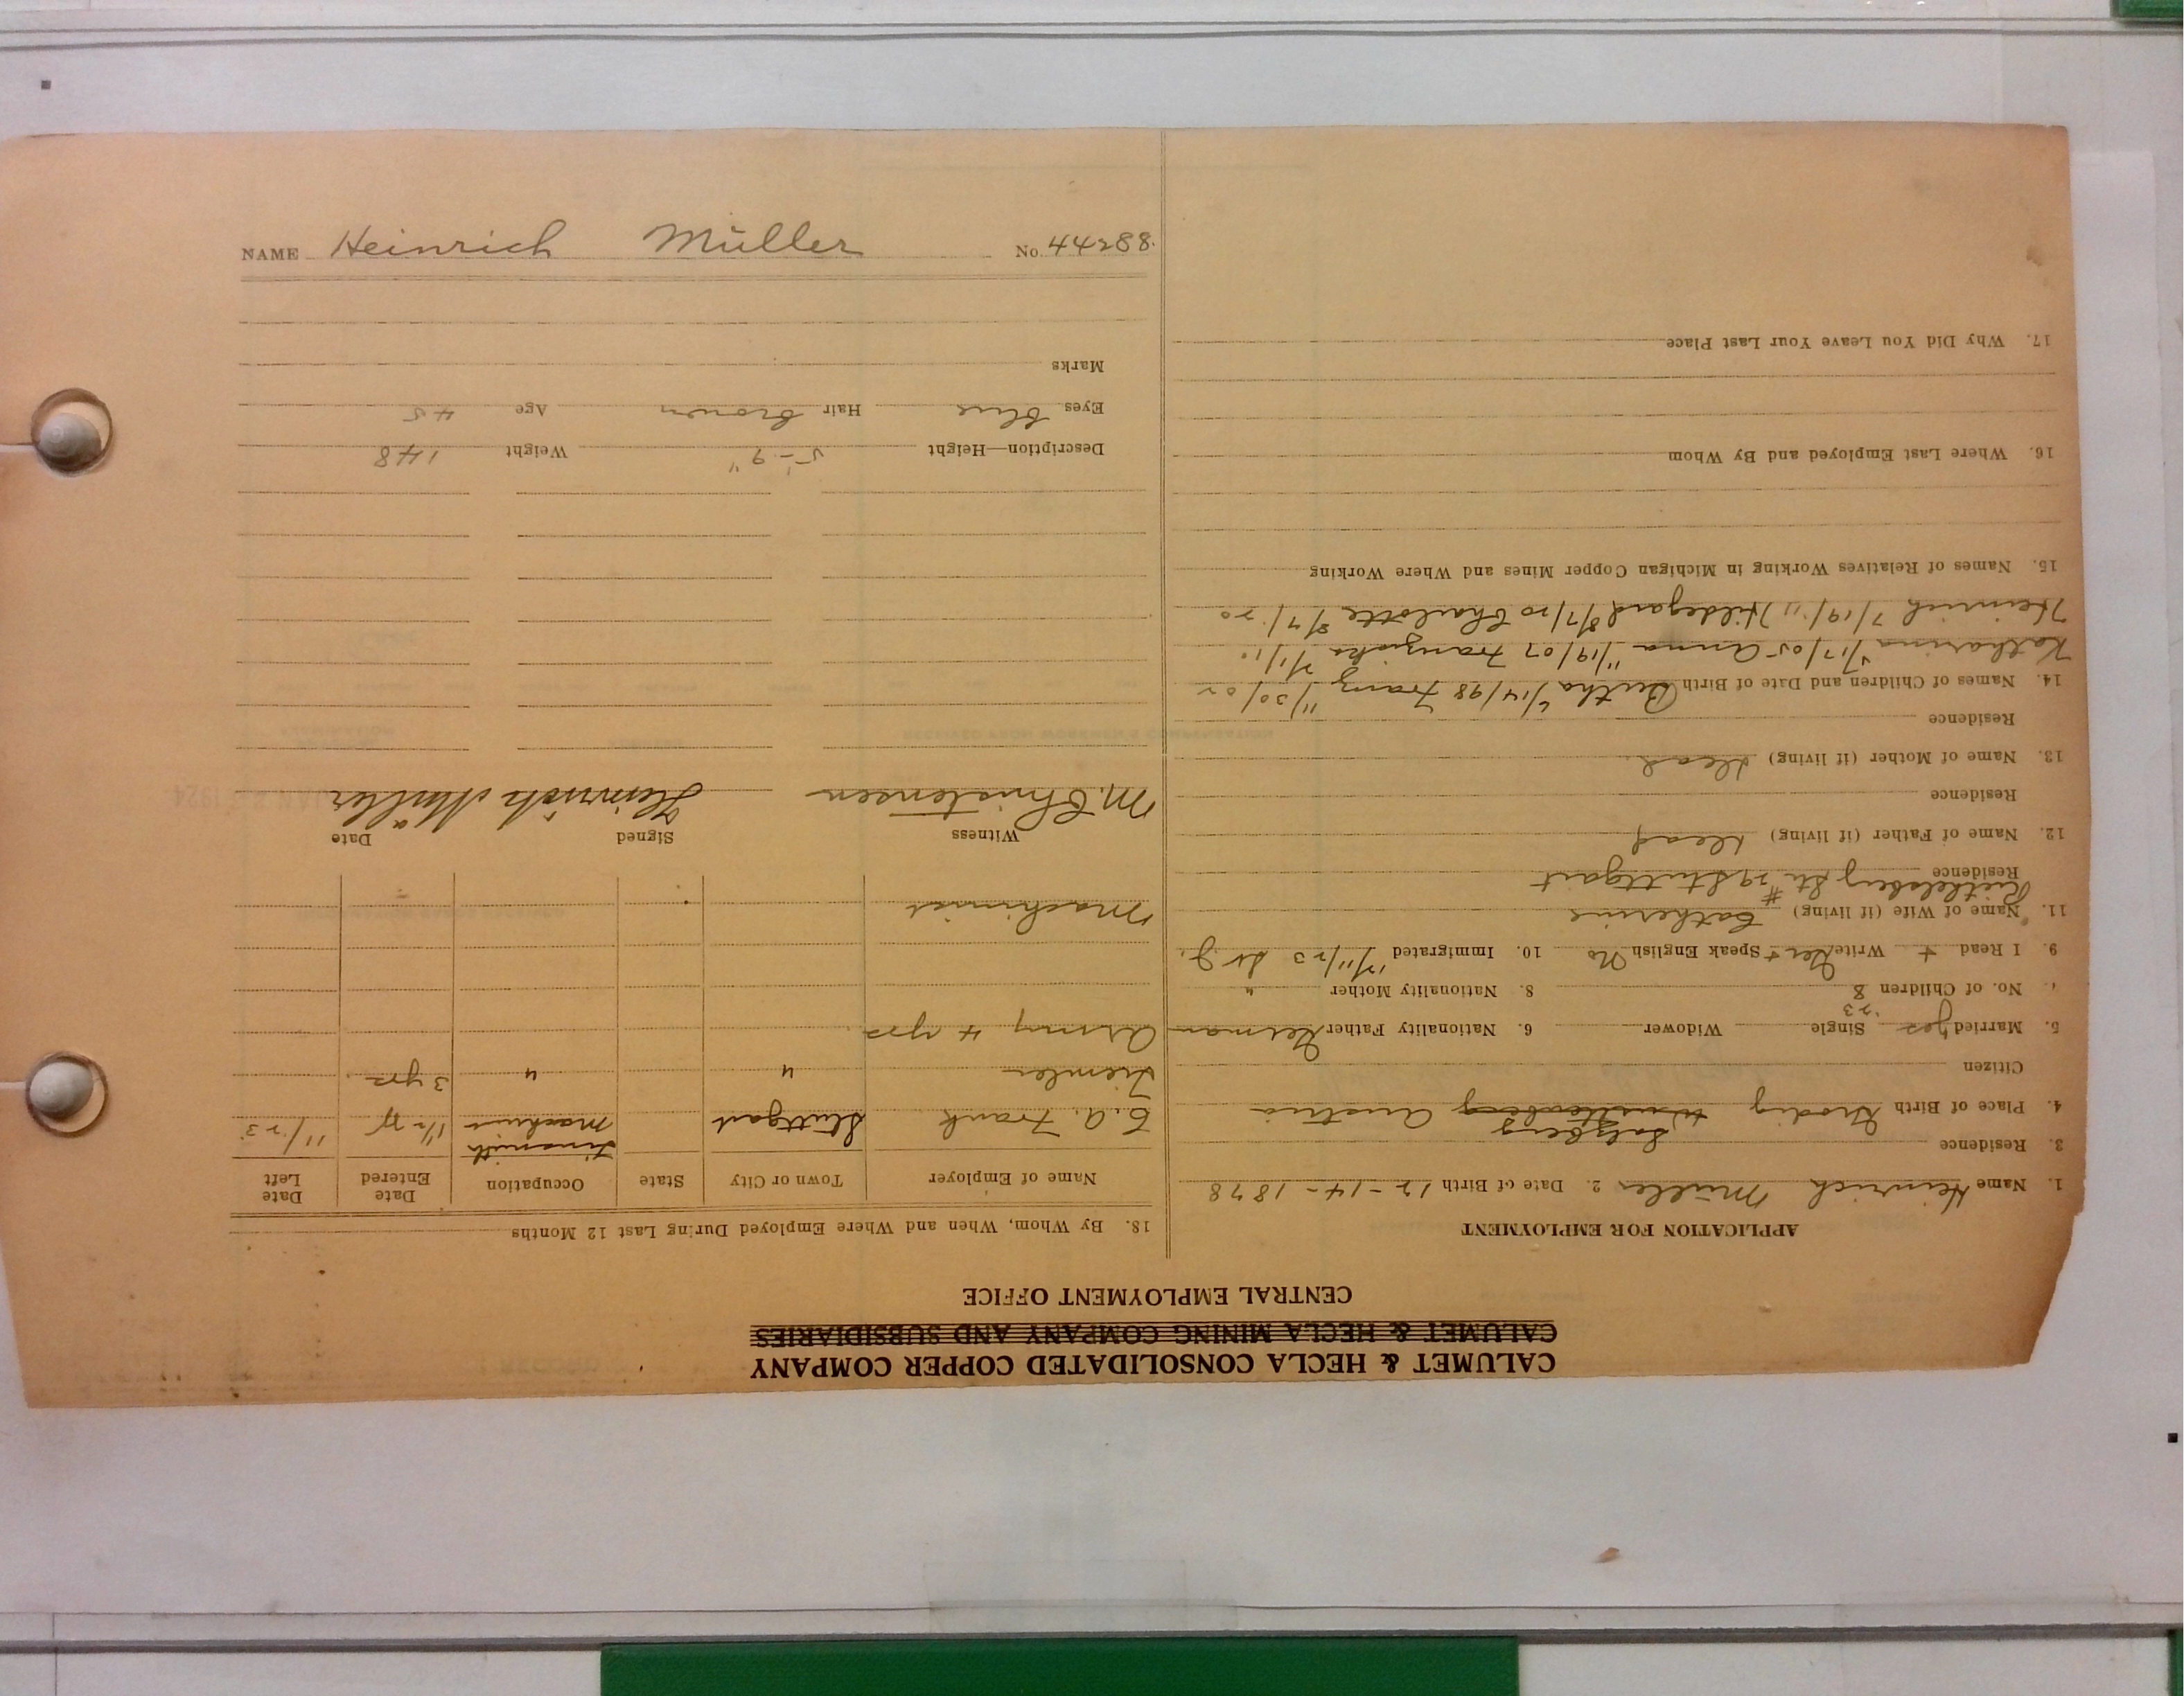 CALUMET & HECLA CONSOLIDATED COPPER COMPANY
CALUMET & HECLA MINING COMPANY AND SUBSIDIARIES
CENTRAL EMPLOYMENT OFFICE
APPLICATION FOR EMPLOYMENT
1. Name Heinrich Müller 2. Date of Birth 12-14-1878
3. Residence
Salzberg
4. Place of Birth Grodig Austria
Citizen
5. Married yes Single Widower 6. Nationality Father German
'23
No. of Children 8 8. Nationality Mother "
9. I Read + Write Ger + Speak English No 10. Immigrated 12/11/23
11. Name of Wife (if living) Catherine
Residence Stuttgart
12. Name of Father (if living) dead
Residence
13. Name of Mother (if living) dead
Residence
14. Names of Children and Date of Birth Bertha 6/14/98 Franz 11/30/02
Katharina 5/17/05 Anna 11/19/07 Franziska 7/1/10
Heinrich 7/19/11 Hildegard 8/7/20 Charlotte 8/7/20
15. Names of Relatives Working in Michigan Copper Mines and Where Working
16. Where Last Employed and By Whom
17. Why Did You Leave Your Last Place
18. By Whom, When and Where Employed During Last 12 Months
Name of Employer Town or City State Occupation Date Entered Date Left
E. A. Frank Stuttgart Tinsmith Machinist 1 1/2 yr 11/23
" " 3 yrs
Army 4 yrs
Machinist
Witness Signed Date
M. Christensen Heinrich Müller
Description—Height 5'-9" Weight 148
Eyes blue Hair brown Age 45
Marks
NAME Heinrich Müller No. 44288